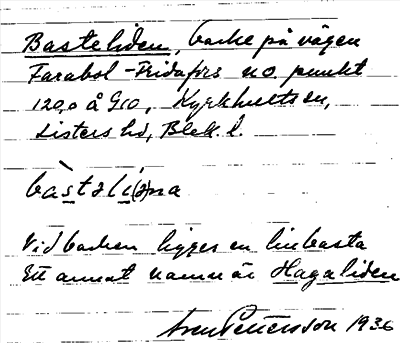 Basteliden, backe på vägen
Farabol - Fridafors n.o. punkt
120,0 å G10, Kyrkhults sn,
Listers hd, Blek. l.
bàstəlí(ə)na
Vid backen ligger en linbasta
Ett annat namn är Hagaliden
Sven Pettersson 1936